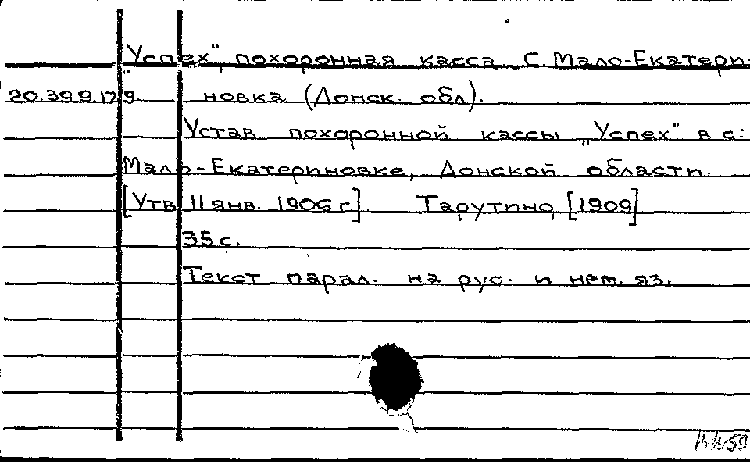 "Успех", похоронная касса. С. Мало-Екатери-
20.39.9.179. новка (Донск. обл).
Устав похоронной кассы „Успех" в с.
Мало-Екатериновке, Донской области.
[Утв. 11 янв. 1906 г.]. Тарутино, [1909]
35 с.
Текст парал. на рус. и нем. яз.